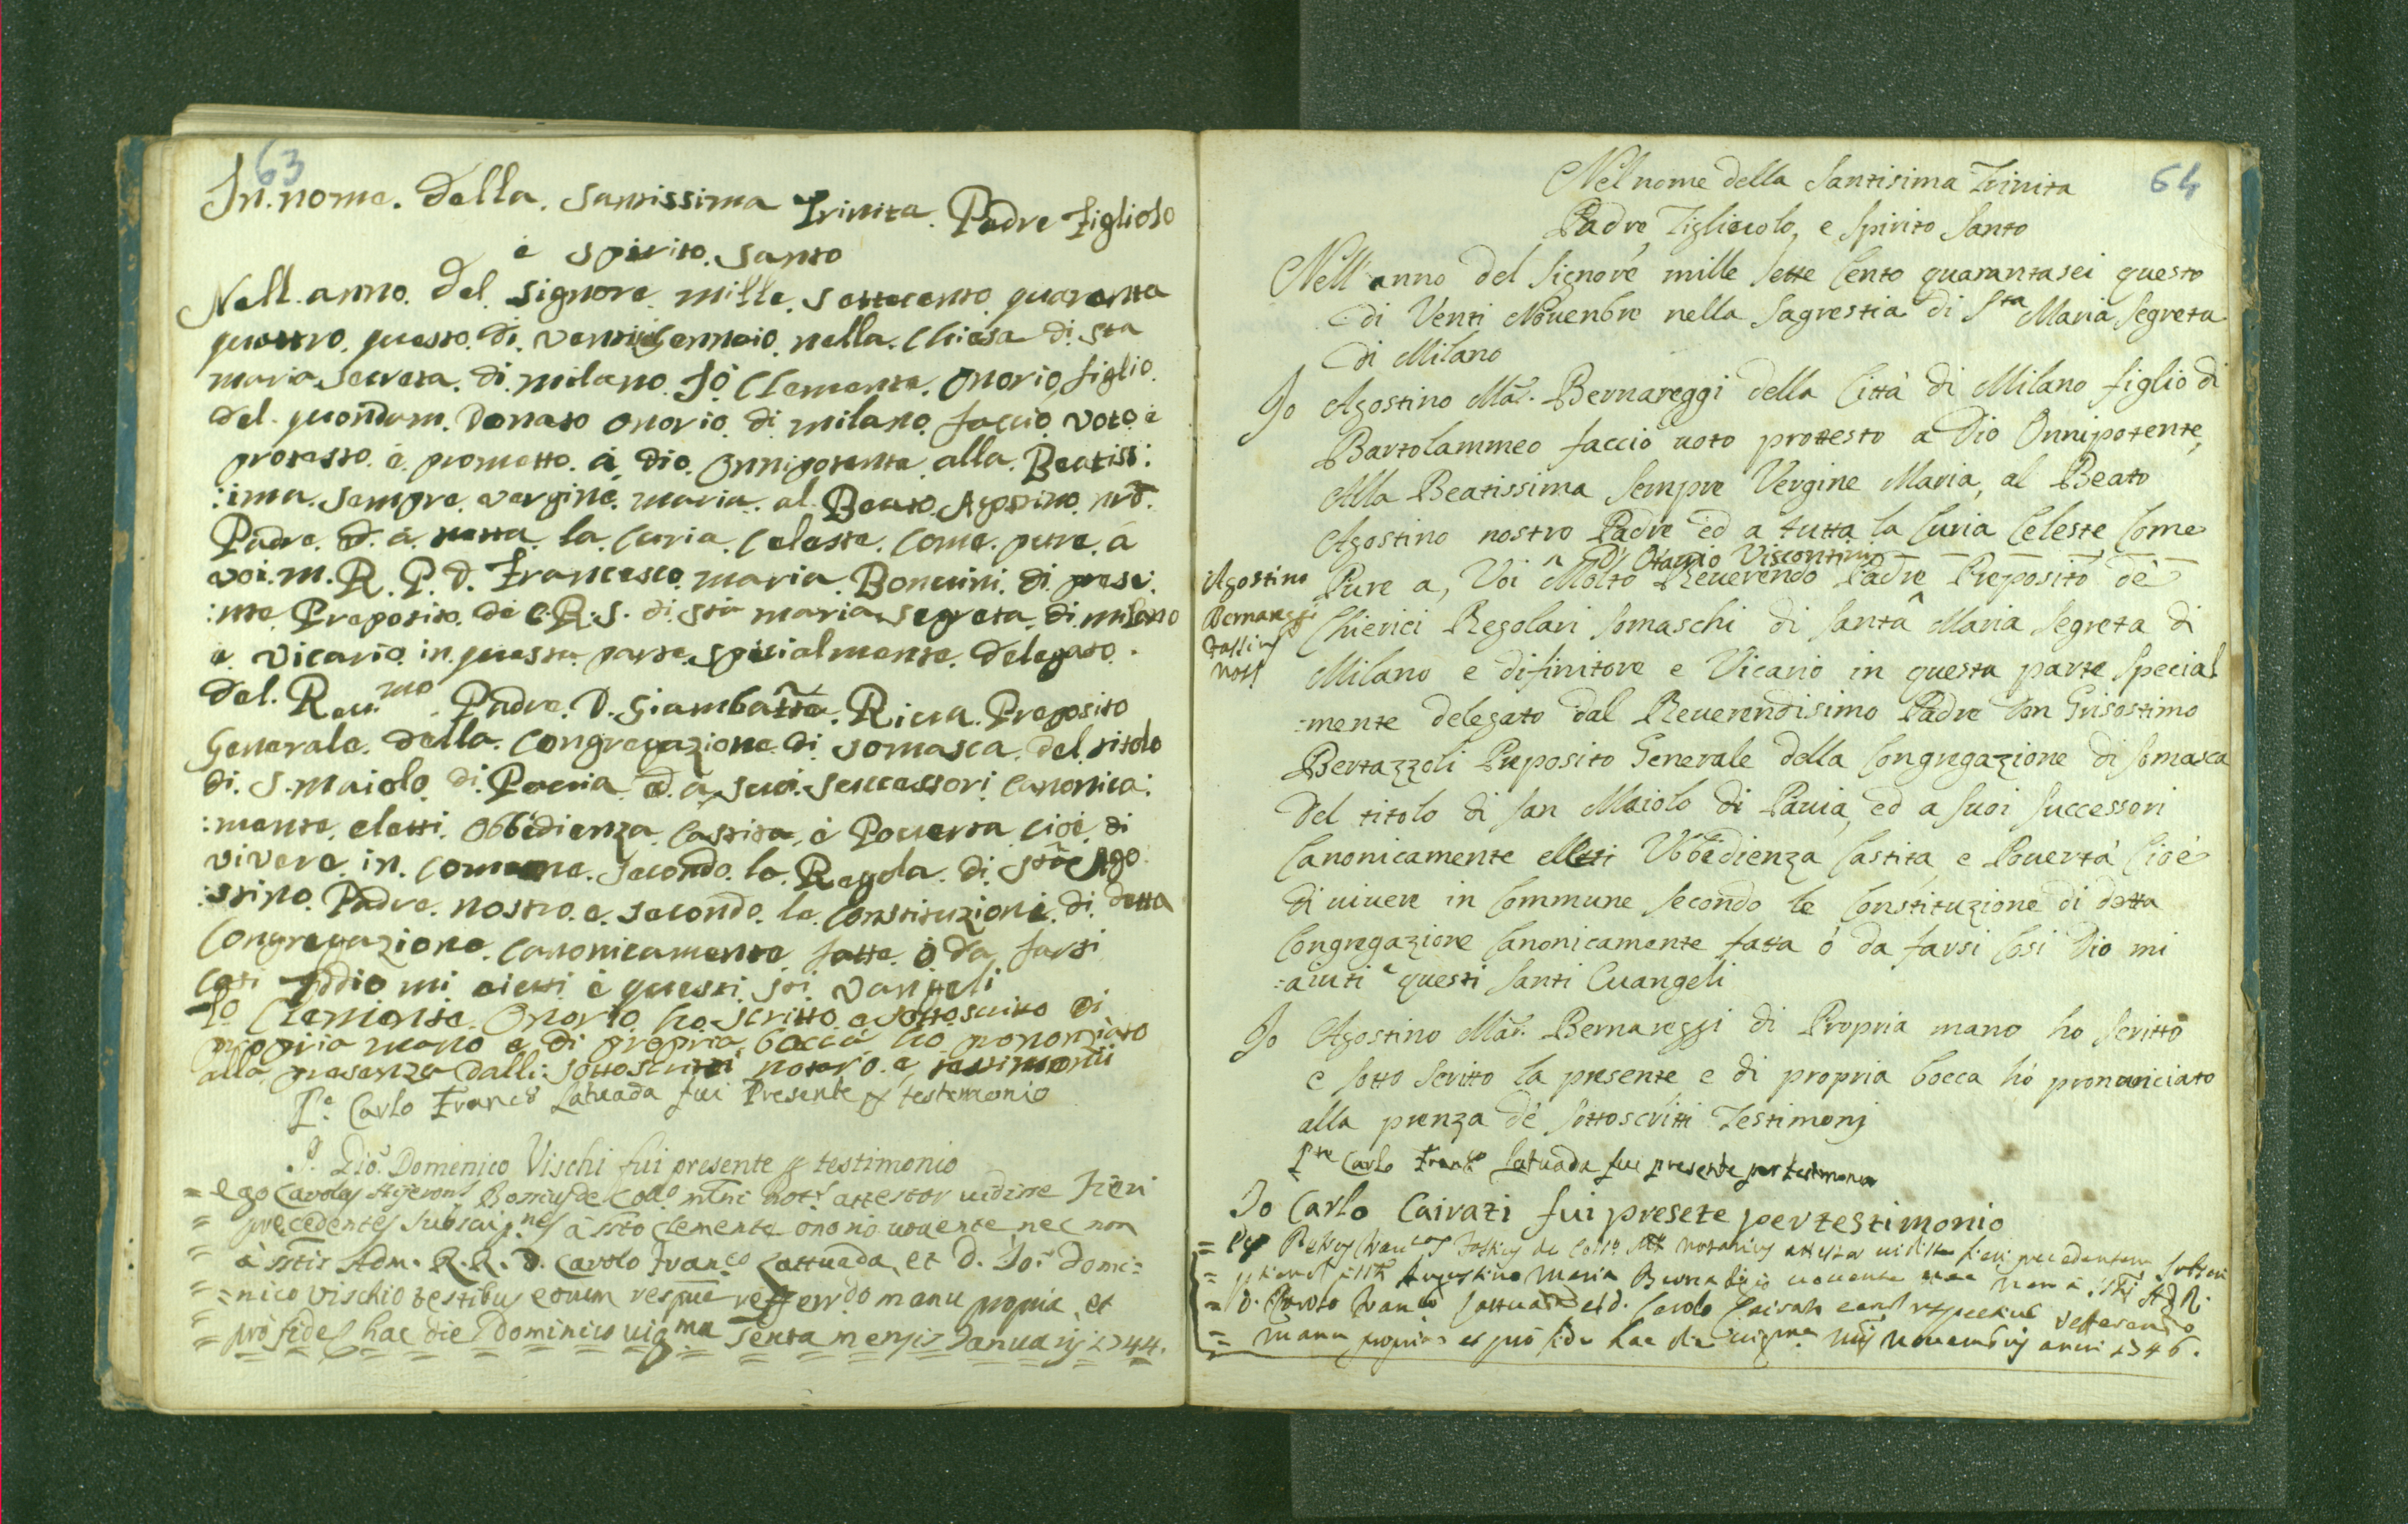 63
In. nome. della. Santissima Trinita. Padre figliolo
è spirito. santo
Nell. anno. del. signore. mille. settecento. quaranta
quattro. questo. di. ventisei Gennaio. nella. Chiesa di. Sta
maria. Secreta. di. milano. Io Clemente. Onorio, figlio.
del. quondam. Donato Onorio. di. milano. faccio. voto. e
protesto. e. prometto. à. Dio. Onnipotente, alla. Beatiss:
:ima. sempre. vergine. maria. al. Beato. Agostino. nrõ.
Padre. d. à. tutta. la. Curia. Celeste. Come. pure. à
voi. m. R. P. D. Francesco. maria. di. prese:
:nte. Preposito. de C. R. S. di. Sta maria segreta. di. milano
è. Vicario. in. questa. parte. spicialmente. delegato.
del. Reu.mo Padre. D. Giambatta. Riua. Preposito
Generale. della. Congregazione. di. somasca. del. titolo
di. S. Maiolo. di. Pavia. ed. à. suoi. successori. Canonica:
:mente. eletti. Obbedienza, Castita, è Pouerta. cioè. di
vivere. in. Comune. Secondo. la. Regola. di. Sto Ago
:stino. Padre. nostro. e. secondo. le. Constituzioni. di. detta
Congregazione. Canonicamente. fatte. ò. da farsi
Cosi Iddio mi aiutti è questi sti vangeli
Io Clemente. Onorio. ho. scritto. e sottoscritto di
propria mano e. di propria bocca ho prononciato
alla presenza dalli: sottoscritti notaro. e, testimonii
P.e Carlo Franco Latuada fui Presente p testemonio
P. Gio. Domenico Vischi fui presente p testimonio
= ego Carolus de Coll.o notus attestor uidisse fieri
= precedentes subscript.nes à ssto Clemente onorio uouente nec non
= à sstis Adm. R.R. D. Carolo Franco Lattuada, et D. Io. Domi=
= nico Vischio testibus eorum respue refferendo manu propria, et
= pro fide hac die Dominico uig.ma sexta mensis Januarij 1744.
64
Nel nome della Santisima Trinita
Padre, Figliuolo, e Spirito Santo
Nell' anno del Signore mille sette Cento quarantasei questo
di Venti Nouenbre nella Sagrestia di Sta Maria Segreta
di Milano
Io Agostino Ma. Bernareggi della Città di Milano figlio di
Bartolammeo faccio uoto prottesto a Dio Onnipotente,
Alla Beatissima Sempre Vergine Maria, al Beato
Agostino nostro Padre ed a tutta la Curia Celeste Come
D. Otavio Viscontini
Pure a, Voi Molto Reuerendo Padre Preposito dè
Agostino
Bernareggi
Chierici Regolari Somaschi di Santa Maria Segreta di
Milano e difinitore e Vicario in questa parte Special
:mente delegato dal Reuerendisimo Padre Don Grisostimo
Bertazzoli Preposito Generale della Congregazione di Somasca
Del titolo di San Maiolo di Pauia, ed a suoi successori
Canonicamente elletti Vbbedienza Castita, e Pouertà Cioè
di uiuere in Commune secondo le Constituzione di detta
Congregazione Canonicamente fatta ò da farsi Cosi Dio mi
:aiuti e questi Santi Euangeli
Io Agostino Ma. Bernareggi di Propria mano ho scritto
e sotto scritto la presente e di propria bocca hò pronunciato
alla prenza dè sottoscritti Testimonj
Pre Carlo Franco Latuada fui presente per testimonio
Io Carlo Cairati fui presete per testimonio
= Ego de Coll.o notarius attestor uidisse fieri precedentem subscri
= Augustino Maria uouente nec non à
= D. Carolo Franco Lattuada et D. Carolo Cairati refferendo
= manu propria et pro fide hac die Nouembris anni 1746.